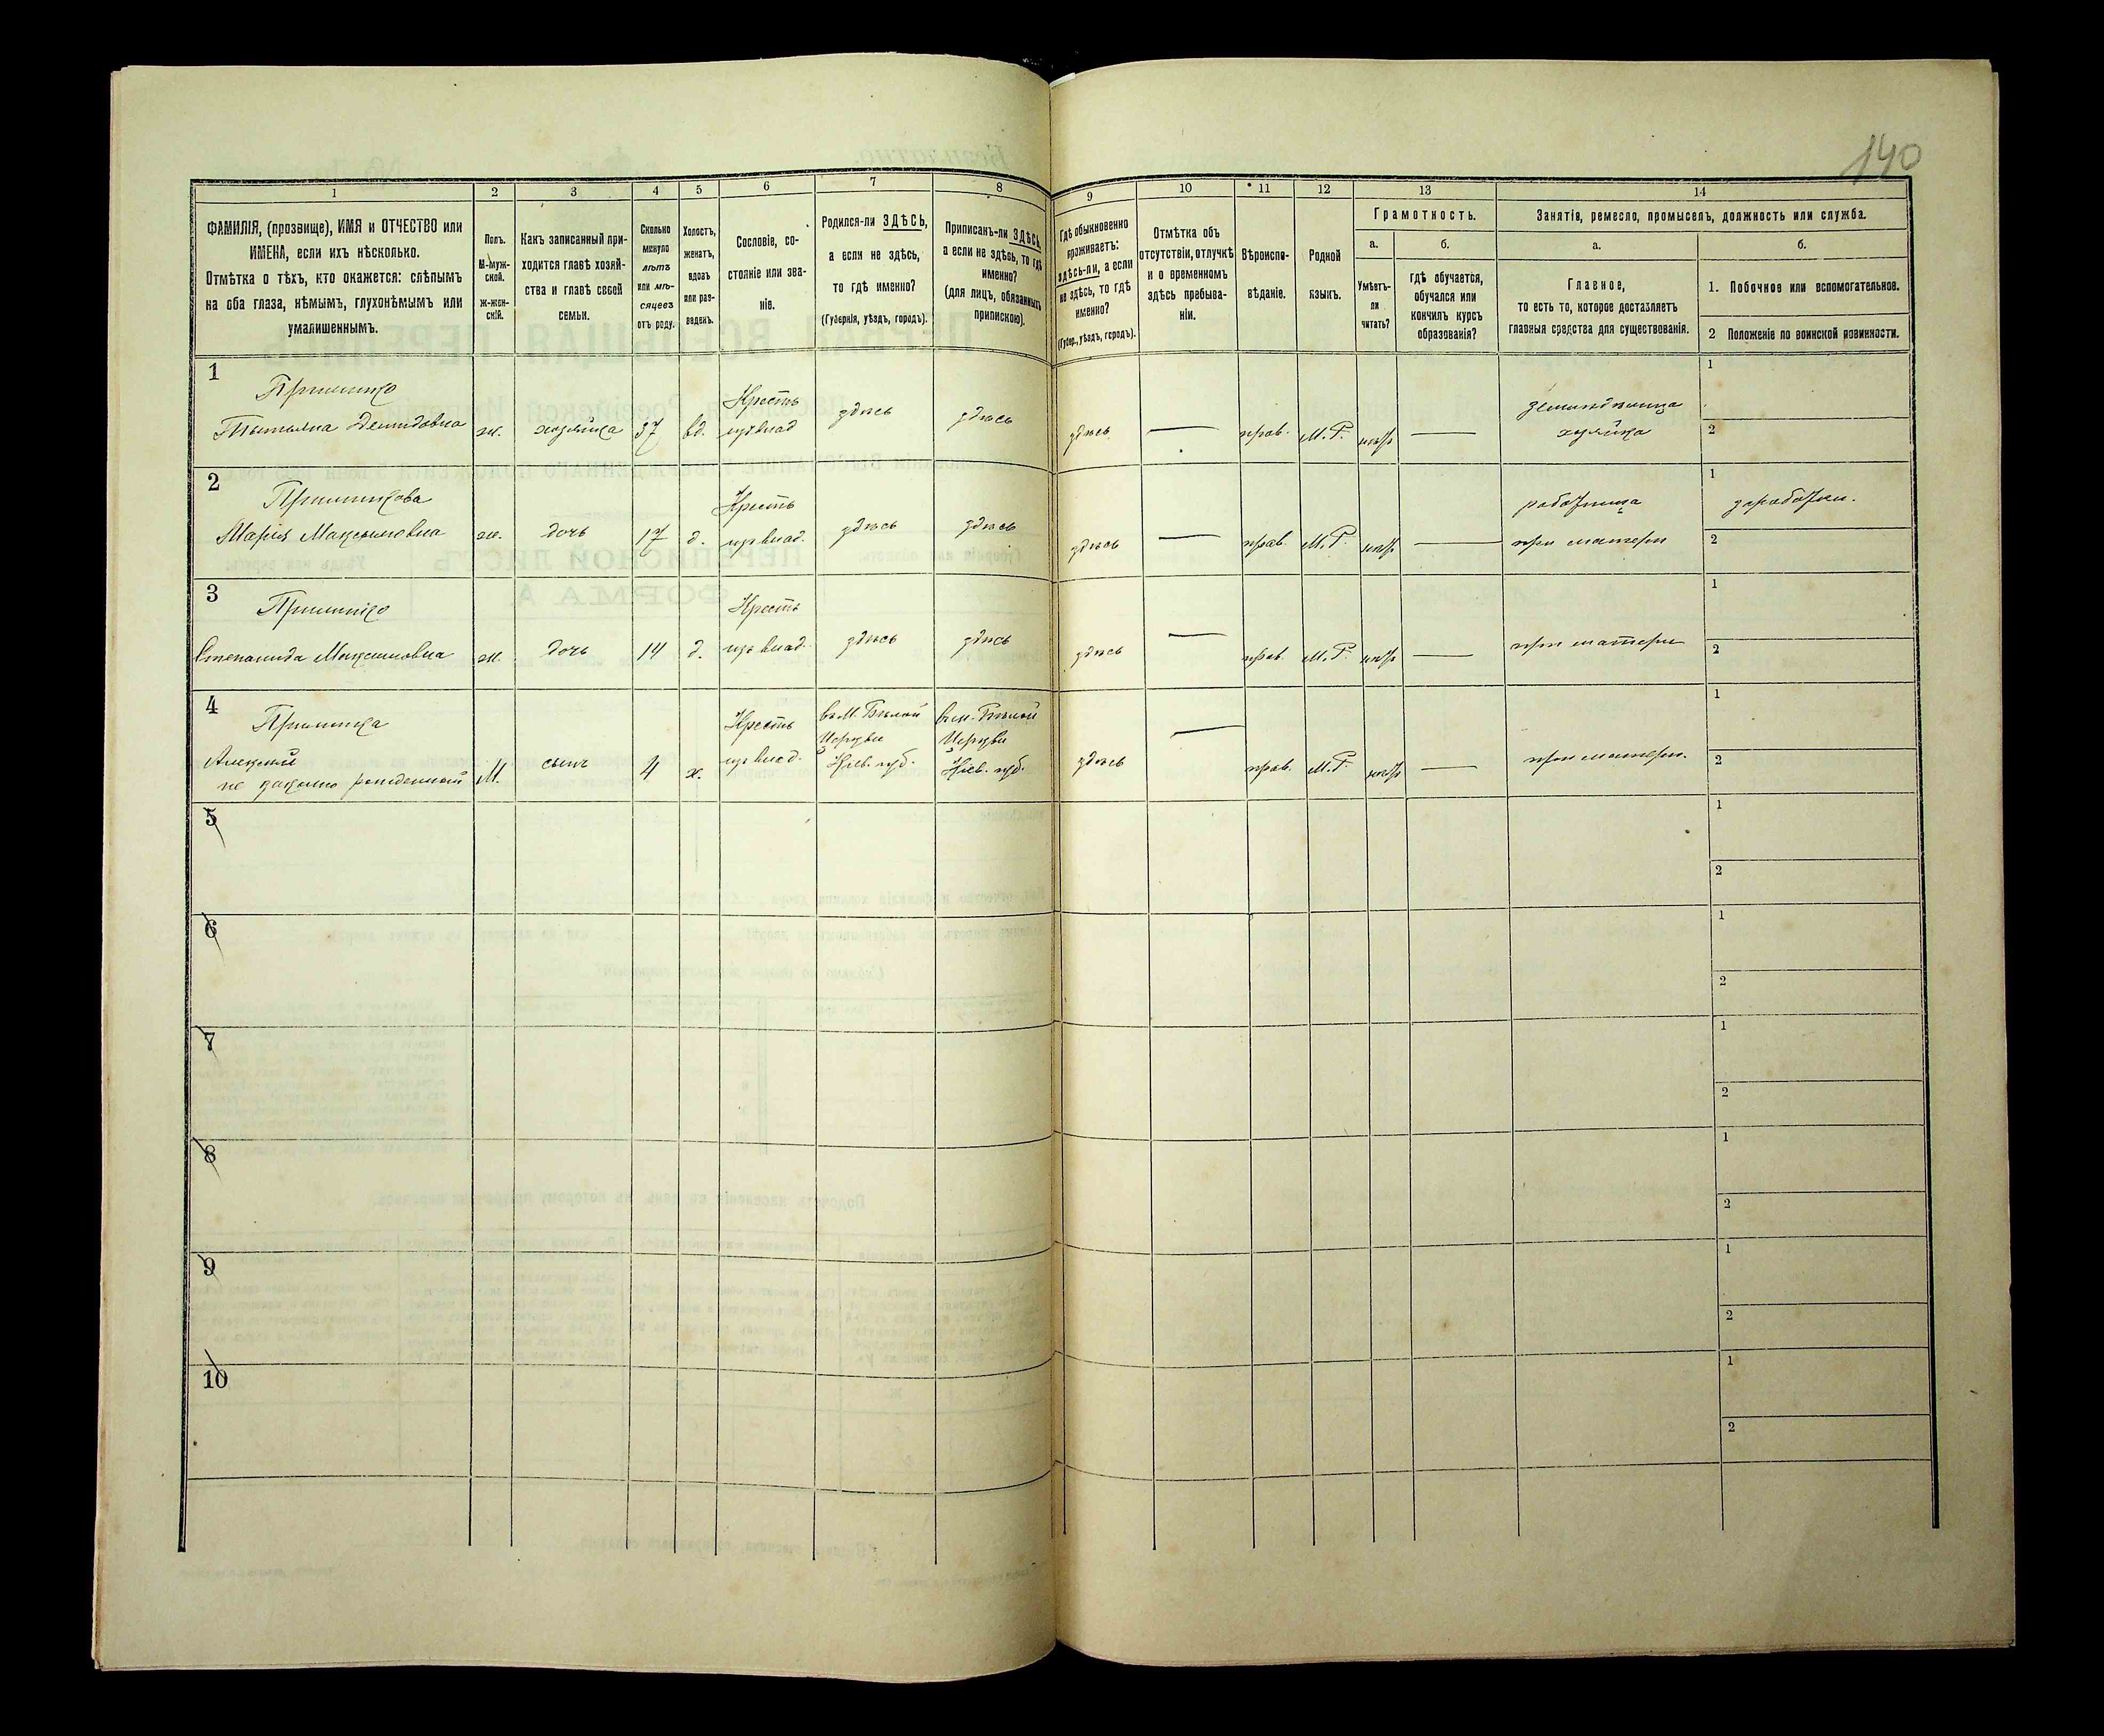 140
1 2 3 4 5 6 7 8 9 10 11 12 13 14
ФАМИЛІЯ, (прозвище), ИМЯ и ОТЧЕСТВО или
ИМЕНА, если ихъ нѣсколько.
Отмѣтка о тѣхъ, кто окажется: слѣпымъ
на оба глаза, нѣмымъ, глухонѣмымъ или
умалишеннымъ.
Полъ.
М-муж-
ской.
ж-жен-
скій.
Какъ записанный при-
ходится главѣ хозяй-
ства и главѣ своей
семьи.
Сколько
минуло
лѣтъ
или мѣ-
сяцевъ
отъ роду.
Холостъ,
женатъ,
вдовъ
или раз-
веденъ.
Сословіе, со-
стояніе или зва-
ніе.
Родился-ли ЗДѢСЬ,
а если не здѣсь,
то гдѣ именно?
(Губернія, уѣздъ, городъ).
Приписанъ-ли ЗДѢСЬ,
а если не здѣсь, то гдѣ
именно?
(для лицъ, обязанныхъ
припискою).
Гдѣ обыкновенно
проживаетъ:
здѣсь-ли, а если
не здѣсь, то гдѣ
именно?
(Губер., уѣздъ, городъ).
Отмѣтка объ
отсутствіи, отлучкѣ
и о временномъ
здѣсь пребыва-
ніи.
Вѣроиспо-
вѣданіе.
Родной
языкъ.
Грамотность.
а.
Умѣетъ-
ли
читать?
б.
гдѣ обучается,
обучался или
кончилъ курсъ
образованія?
Занятія, ремесло, промыселъ, должность или служба.
а.
Главное,
то есть то, которое доставляетъ
главныя средства для существованія.
б.
1. Побочное или вспомогательное.
2 Положеніе по воинской повинности.
1
Татьяна Демидовна ж. хозяйка 37 вд. Крестъ
из влад здѣсь здѣсь здѣсь — прав. М.Р. нѣтъ —
хозяйка
1
2
2
Марія Максимовна ж. дочь 17 д. Крестъ
из влад. здѣсь здѣсь здѣсь — прав. М.Р. нѣтъ — работница
при матери
1
2
3
Степанида Максимовна ж. дочь 14 д. Крестъ
из влад. здѣсь здѣсь здѣсь — прав. М.Р. нѣтъ — при матери
1
2
4
Алексѣй
не законно рожденный М. сынъ 4 х. Крестъ
из влад. въ М. Бѣлой
Церкви
Кіев. губ. въ м. Бѣлой
Церкви
Кіев. губ. здѣсь — прав. М.Р. нѣтъ — при матери.
1
2
5
1
2
6
1
2
7
1
2
8
1
2
9
1
2
10
1
2